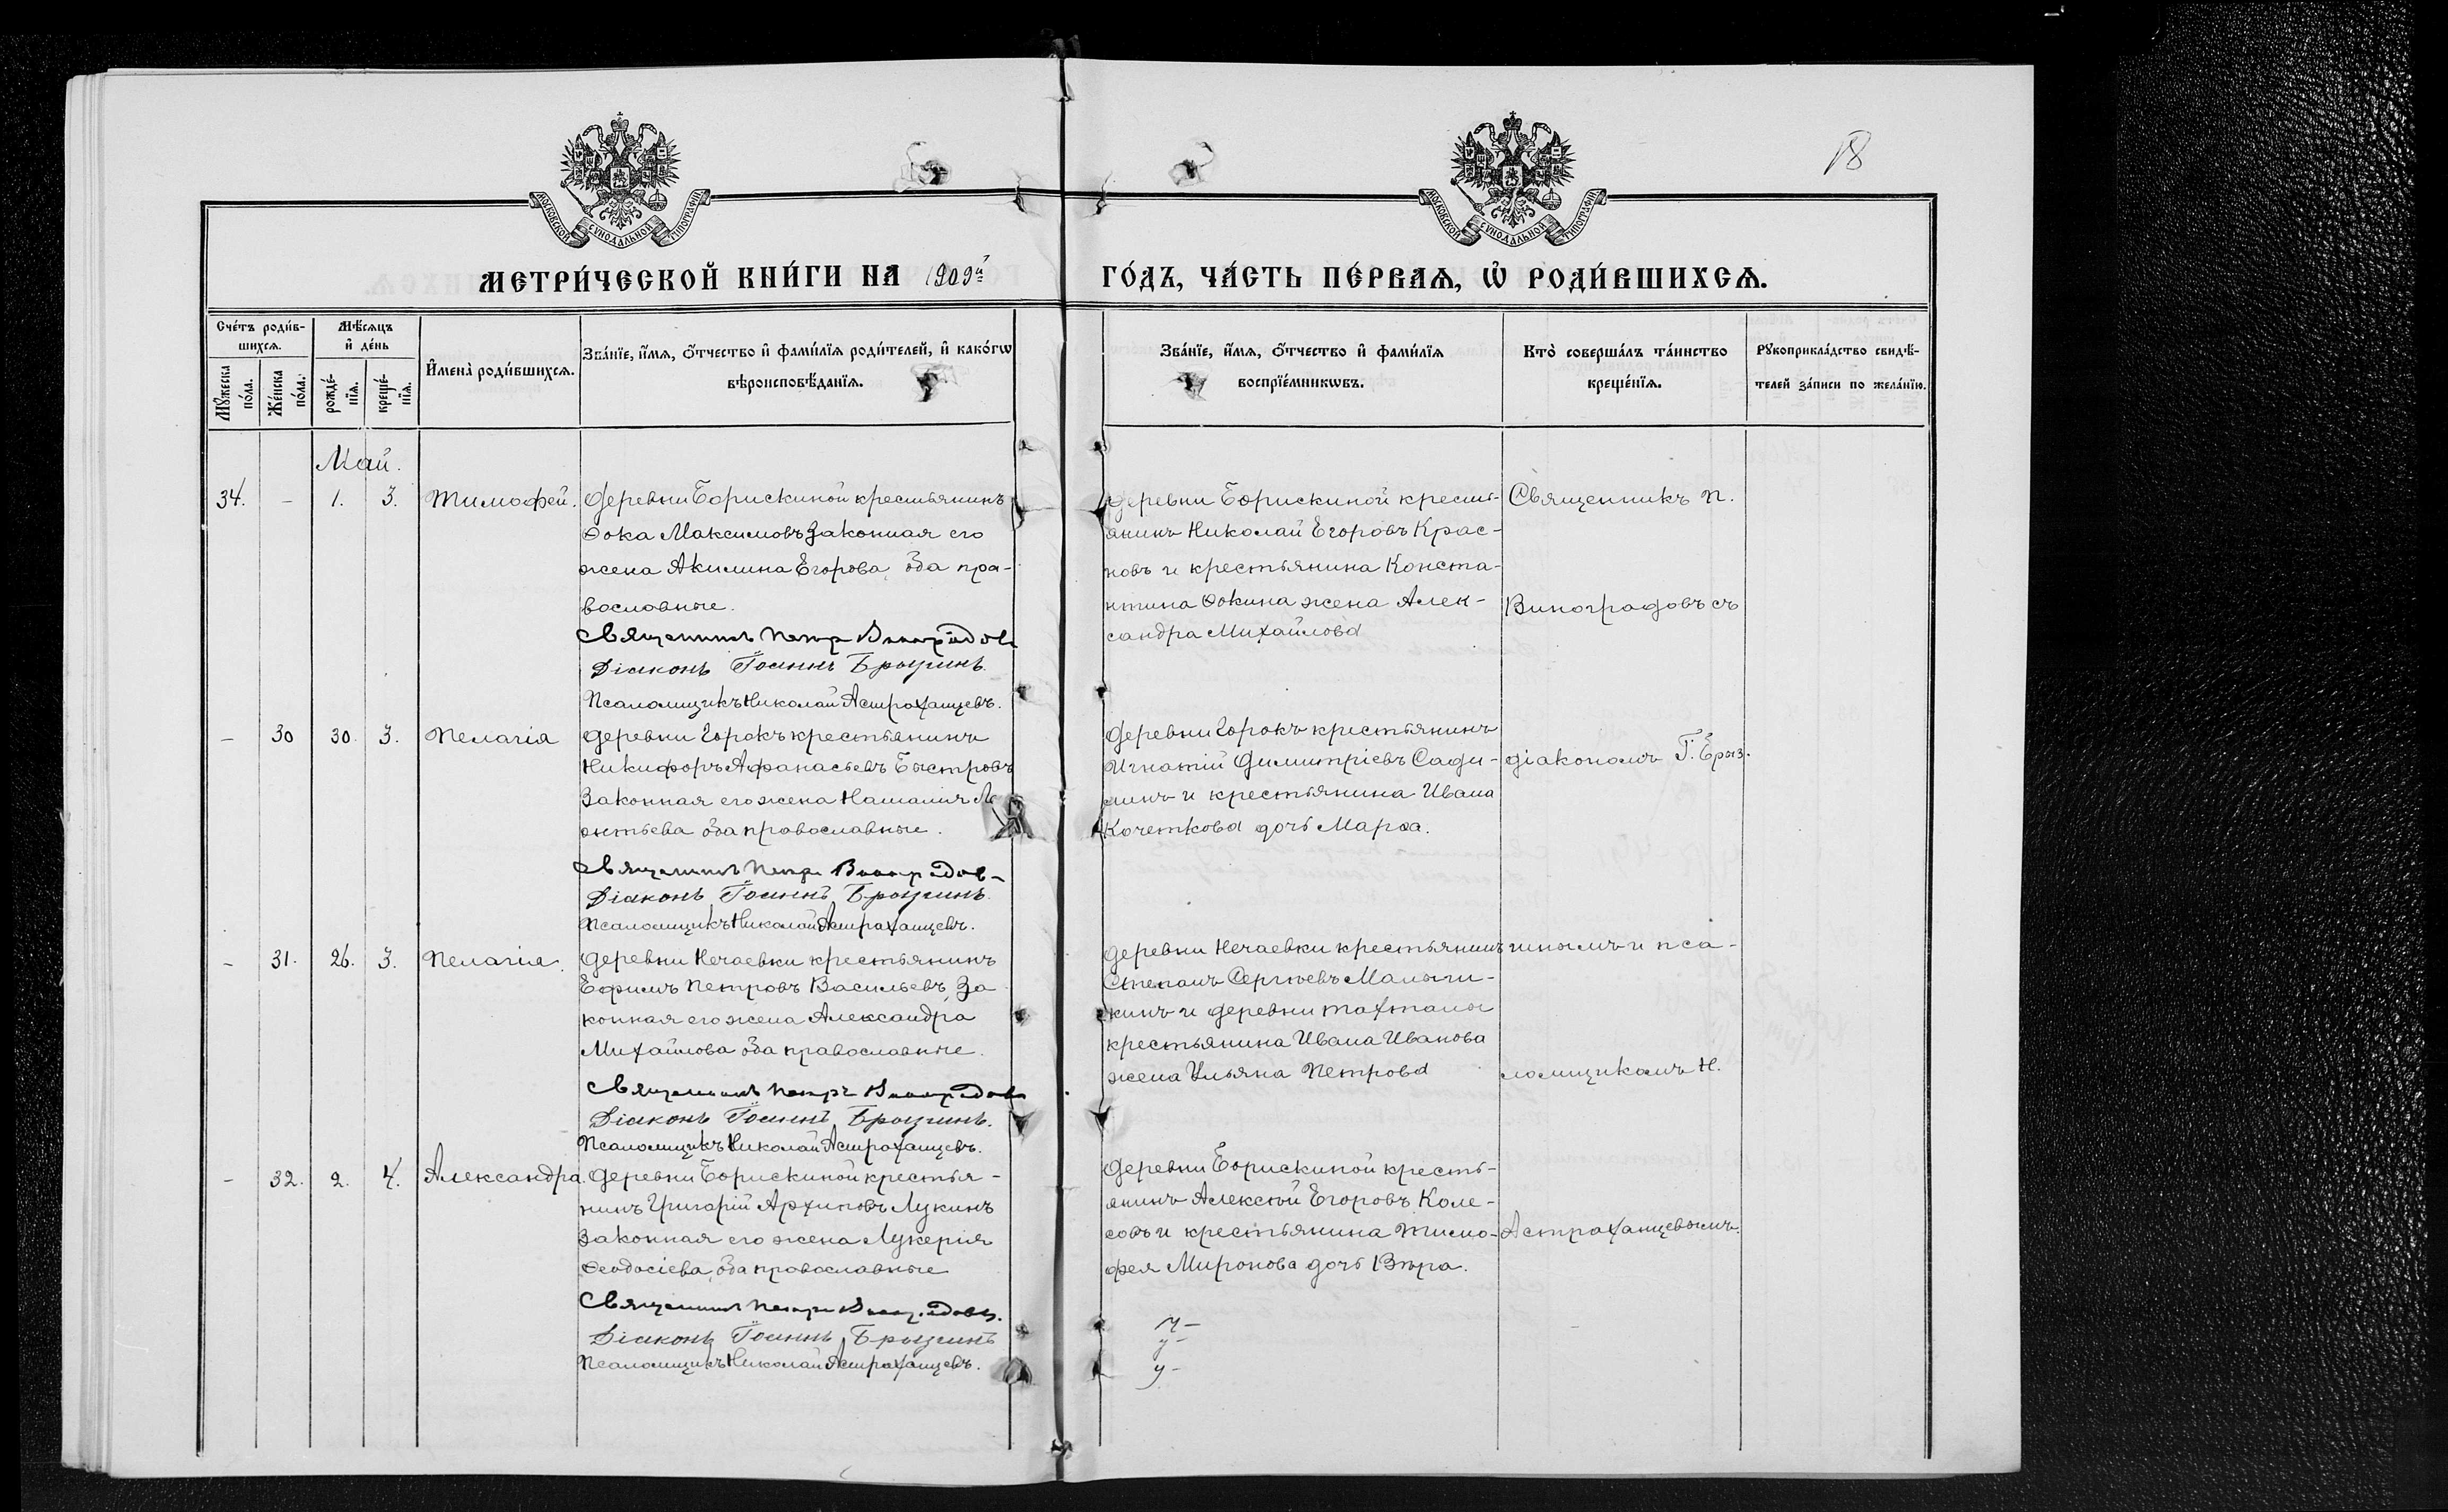 18
МОСКОВСКОЙ СѴНОДАЛЬНОЙ ТИПОГРАФІИ
МОСКОВСКОЙ СѴНОДАЛЬНОЙ ТИПОГРАФІИ
МЕТРИ́ЧЕСКОЙ КНИ́ГИ НА 1909й
ГО́ДЪ, ЧА́СТЬ ПЕ́РВАѦ, Ѡ҆ РОДИ́ВШИХСѦ.
Сче́тъ роди́в-
шихсѧ.
Мꙋ́жеска по́ла.
Же́нска по́ла.
Мѣ́сѧцъ
и҆ де́нь
рожде́-
нїѧ.
креще́-
нїѧ.
И҆мена̀ роди́вшихсѧ.
Зва́нїе, и҆́мѧ, ѻ҆́тчество и҆ фами́лїѧ роди́телей, и҆ како́гѡ
вѣроисповѣ́данїѧ.
Зва́нїе, и҆́мѧ, ѻ҆́тчество и҆ фами́лїѧ
воспрїе́мникѡвъ.
Кто̀ соверша́лъ та́инство
креще́нїѧ.
Рꙋкоприкла́дство свидѣ́-
телей за́писи по жела́нїю.
Май.
34. - 1. 3. Тимофей.
Деревни Борискиной крестьянинъ
Ѳока Максимовъ законная его
жена Акилина Егорова, оба пра-
вославные.
Священникъ Петръ Виноградовъ
Діаконъ Іоаннъ Брызгинъ.
Псаломщикъ Николай Астраханцевъ.
Деревни Борискиной кресть-
янинъ Николай Егоровъ Крас-
новъ и крестьянина Конста-
нтина Ѳокина жена Алек-
сандра Михайлова
Священникъ П.
Виноградовъ съ
- 30 30. 3. Пелагія
Деревни Горокъ крестьянинъ
Никифоръ Аѳанасьевъ Быстровъ
Законная его жена Наталия Ле
онтьева оба православные.
Священникъ Петръ Виноградовъ
Діаконъ Іоаннъ Брызгинъ.
Псаломщикъ Николай Астраханцевъ.
Деревни Горокъ крестьянинъ
Игнатій Димитріевъ
и крестьянина Ивана
Кочеткова дочь Марѳа.
діакономъ І. Брыз-
- 31. 26. 3. Пелагія.
Деревни Нечаевки крестьянинъ
Ефимъ Петровъ Васильевъ, За
конная его жена Александра
Михайлова оба православные.
Священникъ Петръ Виноградовъ
Діаконъ Іоаннъ Брызгинъ.
Псаломщикъ Николай Астраханцевъ.
Деревни Нечаевки крестьянинъ
Степанъ Сергѣевъ Малыги-
кинъ и деревни Тахталы
крестьянина Ивана Иванова
жена Ульяна Петрова
гинымъ и пса-
ломщикомъ Н.
- 32. 2. 4. Александра.
Деревни Борискиной крестья-
нинъ Григорій Архиповъ Лукинъ
Законная его жена Лукерія
Ѳеодосіева, оба православные
Священникъ Петръ Виноградовъ.
Діаконъ Іоаннъ Брызгинъ
Псаломщикъ Николай Астраханцевъ.
Деревни Борискиной кресть-
янинъ Алексѣй Егоровъ Коле-
совъ и крестьянина Тимо-
фея Миронова дочь Вѣра.
Астраханцевымъ.